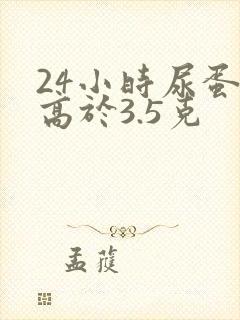 24小時尿蛋
高於3.5克
孟蓰